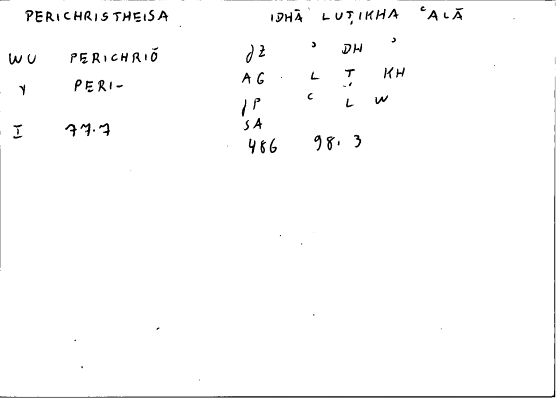 PERICHRISTHEISA IDHĀ LUṬIKHA ʿALĀ
WU PERICHRIŌ ʾ DH ʾ
Y PERI- AG L Ṭ KH
ʿ L W
I 77.7 SA
486 98.3